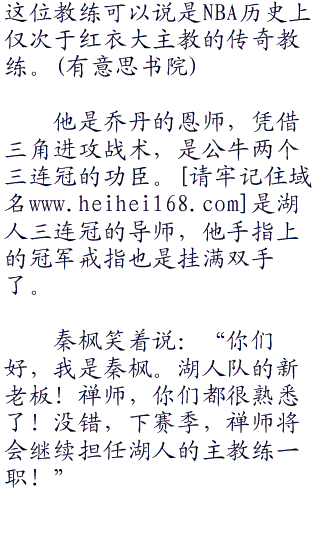 这位教练可以说是NBA历史上
仅次于红衣大主教的传奇教
练。(有意思书院)
他是乔丹的恩师，凭借
三角进攻战术，是公牛两个
三连冠的功臣。[请牢记住域
名www.heihei168.com]是湖
人三连冠的导师，他手指上
的冠军戒指也是挂满双手
了。
秦枫笑着说：“你们
好，我是秦枫。湖人队的新
老板！禅师，你们都很熟悉
了！没错，下赛季，禅师将
会继续担任湖人的主教练一
职！”